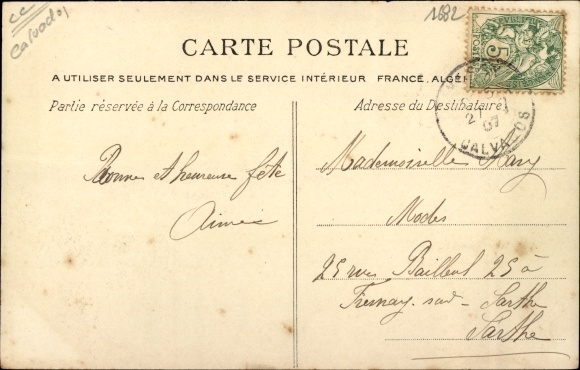 cc
Calvados
1682
5
CARTE POSTALE
A UTILISER SEULEMENT DANS LE SERVICE INTÉRIEUR FRANCE, ALGÉR
Partie réservée à la Correspondance
Adresse du Destinataire
27
07
CALVADOS
Bonne et heureuse fête
Aimée
Mademoiselle
Modes
25 rue Bailleul 25 à
Fresnay-sur-Sarthe
Sarthe